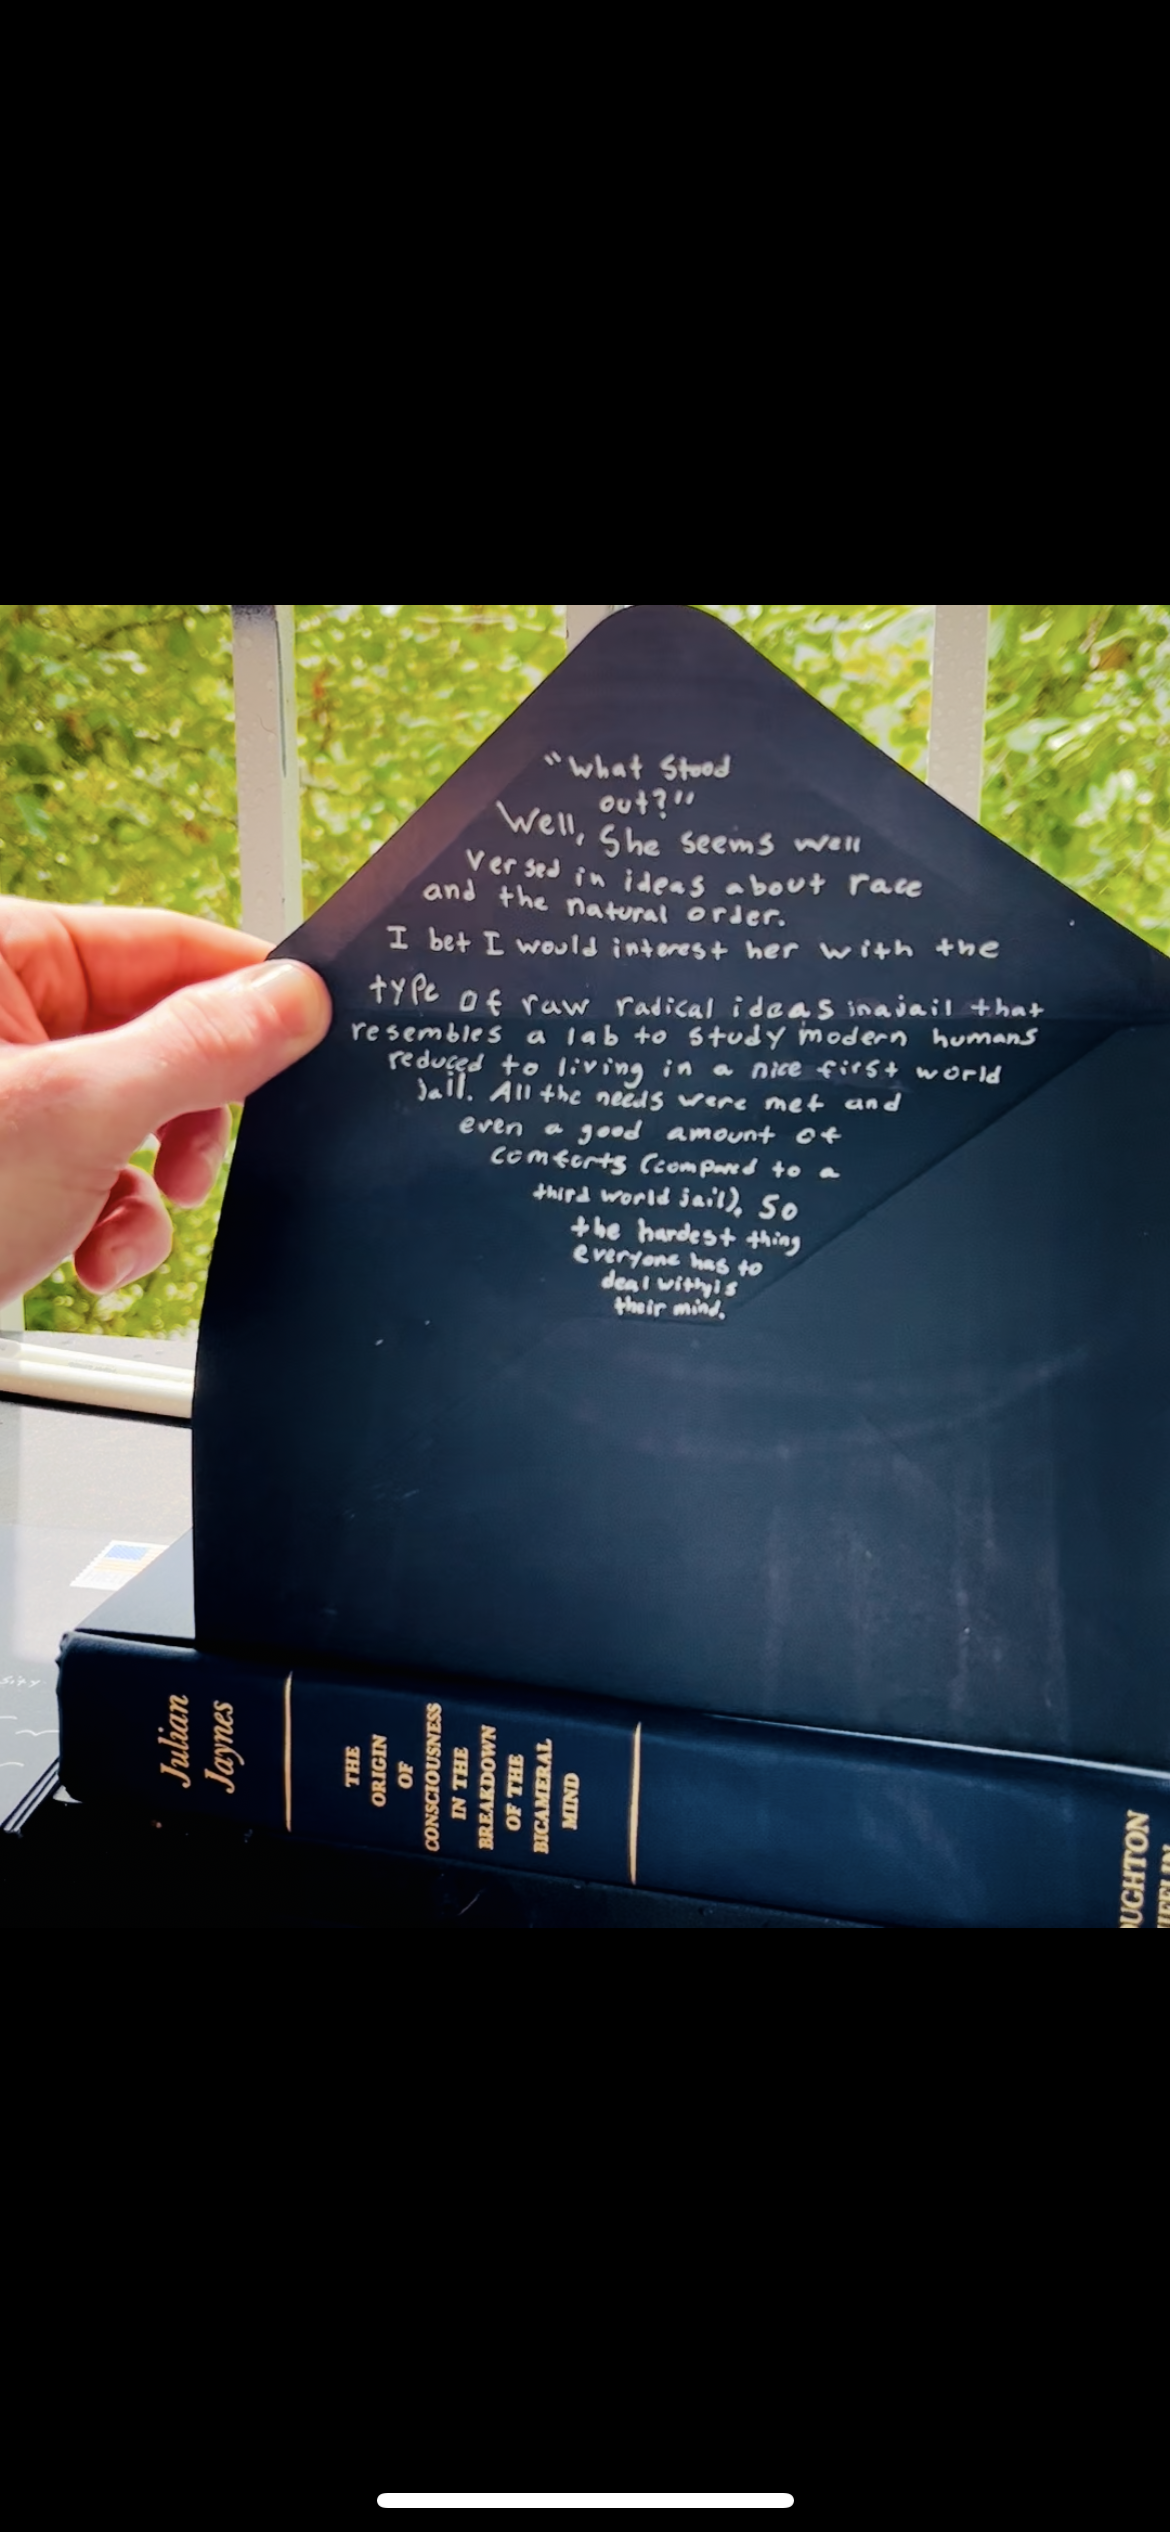 "What Stood
out?"
Well, She seems well
versed in ideas about race
and the natural order.
I bet I would interest her with the
type of raw radical ideas in a jail that
resembles a lab to study modern humans
reduced to living in a nice first world
Jail. All the needs were met and
even a good amount of
comforts (compared to a
third world jail). So
the hardest thing
everyone has to
deal with is
their mind.
Julian
Jaynes
THE
ORIGIN
OF
CONSCIOUSNESS
IN THE
BREAKDOWN
OF THE
BICAMERAL
MIND
OUGHTON